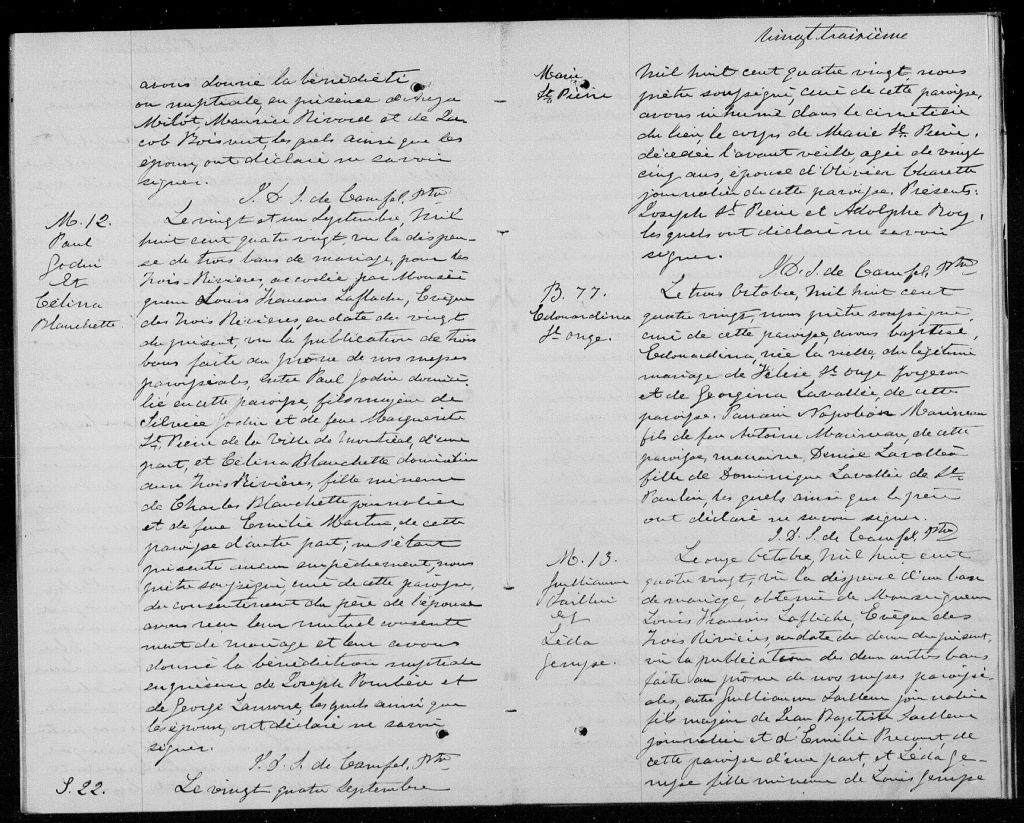 avons donné la bénédicti
on nuptiale, en présence de
Milot Maurice Rivard et de Ja
cob Boisvert, les quels ainsi que les
époux, ont déclaré ne savoir
signer.
J. D. S. de Carufel, Ptre
M. 12.
Paul
Godin
et
Célina
Blanchette
Le vingt et un Septembre, Mil
huit cent quatre vingt, vu la dispen
se de trois bans de mariage, pour les
Trois-Rivières, accordée par Monsei
gneur Louis François Laflèche, Evêque
des Trois Rivières, en date du vingt
du présent, vu la publication de trois
bans faite au prône de nos messes
paroissiales, entre Paul Godin domici
lié en cette paroisse, fils majeur de
Godin et de feue Marguerite
St. Pierre de la Ville de Montréal, d'une
part, et Célina Blanchette domiciliée
aux Trois Rivières, fille mineure
de Charles Blanchette journalier
et de feue Emilie Martin, de cette
paroisse d'autre part; ne s'étant
présenté aucun empêchement, nous
prêtre soussigné, curé de cette paroisse,
du consentement du père de l'épouse
avons reçu leur mutuel consente
ment de mariage et leur avons
donné la bénédiction nuptiale
en présence de Joseph et
de George Lamore, les quels ainsi que
les époux, ont déclaré ne savoir
signer.
J. D. S. de Carufel, Ptre
S. 22.
Le vingt quatre Septembre
vingt troisième
Marie
St. Pierre
Mil huit cent quatre vingt, nous
prêtre soussigné, curé de cette paroisse,
avons inhumé dans le cimetière
du lieu, le corps de Marie St. Pierre,
décédée l'avant veille, agée de vingt
cinq ans, épouse d'Olivier Charette
journalier de cette paroisse. Présents:
Joseph St. Pierre et Adolphe Roy,
les quels ont déclaré ne savoir
signer.
J. D. S. de Carufel, Ptre
B. 77.
Edouardina
St. Onge.
Le trois Octobre, Mil huit cent
quatre vingt, nous prêtre soussigné,
curé de cette paroisse, avons baptisé,
Edouardina, née la veille, du légitime
mariage de Félix St. Onge forgeron
et de Georgina Lavallée, de cette
paroisse. Parrain Napoléon Marineau
fils de feu Antoine Marineau, de cette
paroisse, marraine, Denise Lavallée
fille de Dominique Lavallée de St.
Paulin, les quels ainsi que le père
ont déclaré ne savoir signer.
J. D. S. de Carufel, Ptre
M. 13.
Guilliaume
et
Léda
Gensse.
Le onze Octobre, Mil huit cent
quatre vingt, vu la dispense d'un ban
de mariage, obtenue de Monseigneur
Louis François Laflèche, Evêque des
Trois Rivières, en date du deux du présent,
vu la publication des deux autres bans
faite au prône de nos messes paroissi
ales, entre Guilliaume journalier
fils majeur de Jean Baptiste
journalier et d'Emilie de
cette paroisse d'une part, et Léda Ge-
nsse fille mineure de Louis Gensse